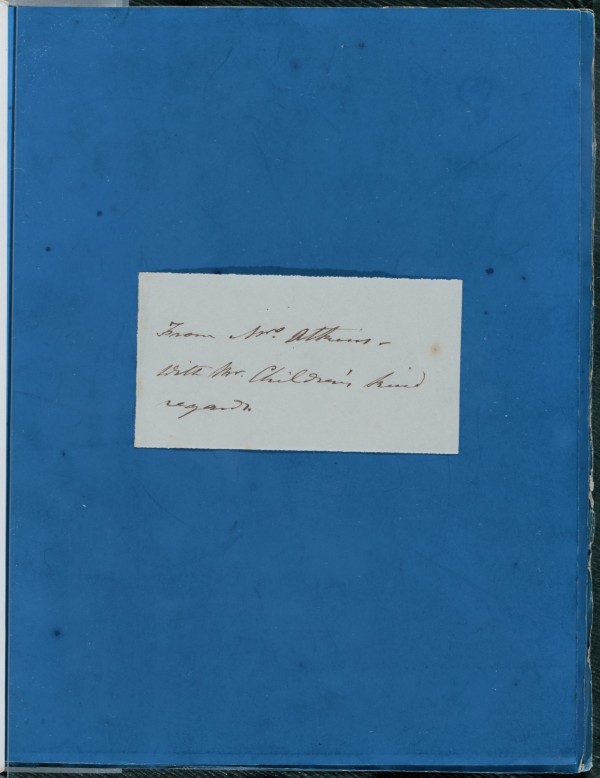 From Mrs. Atkins -
With Mr. Children's kind
regards.